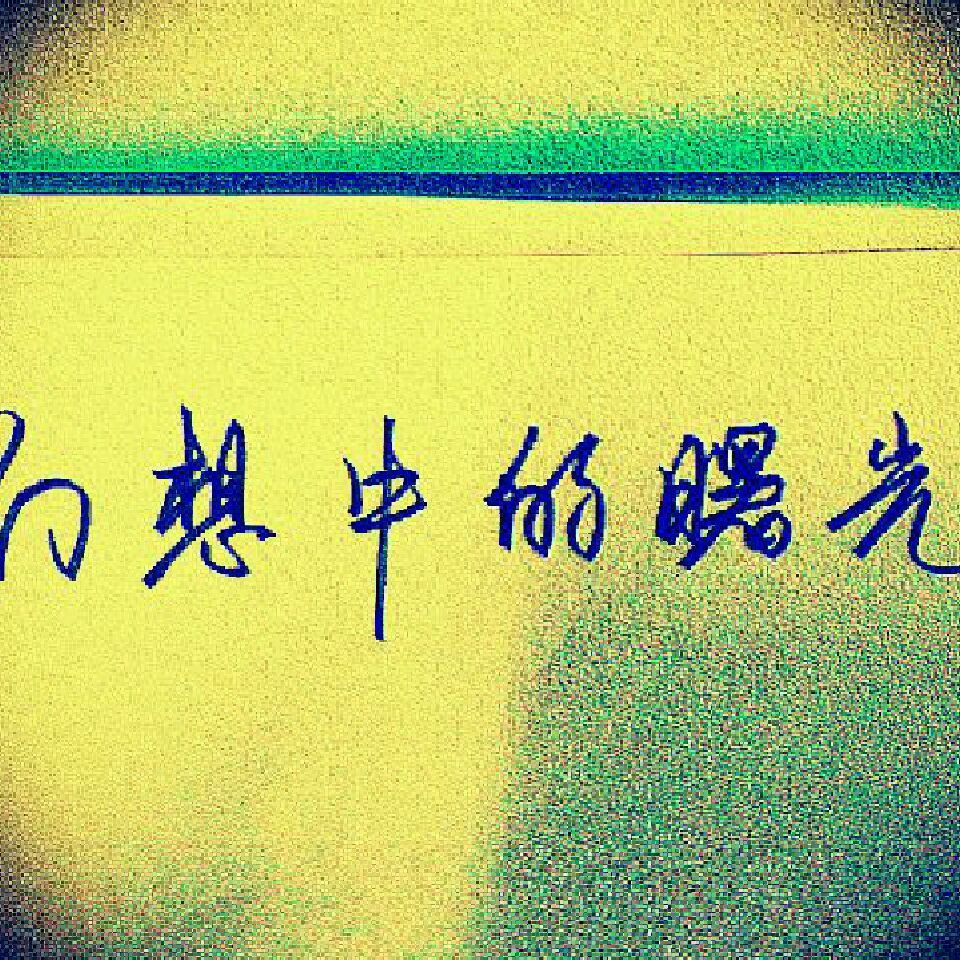 想中的曙光